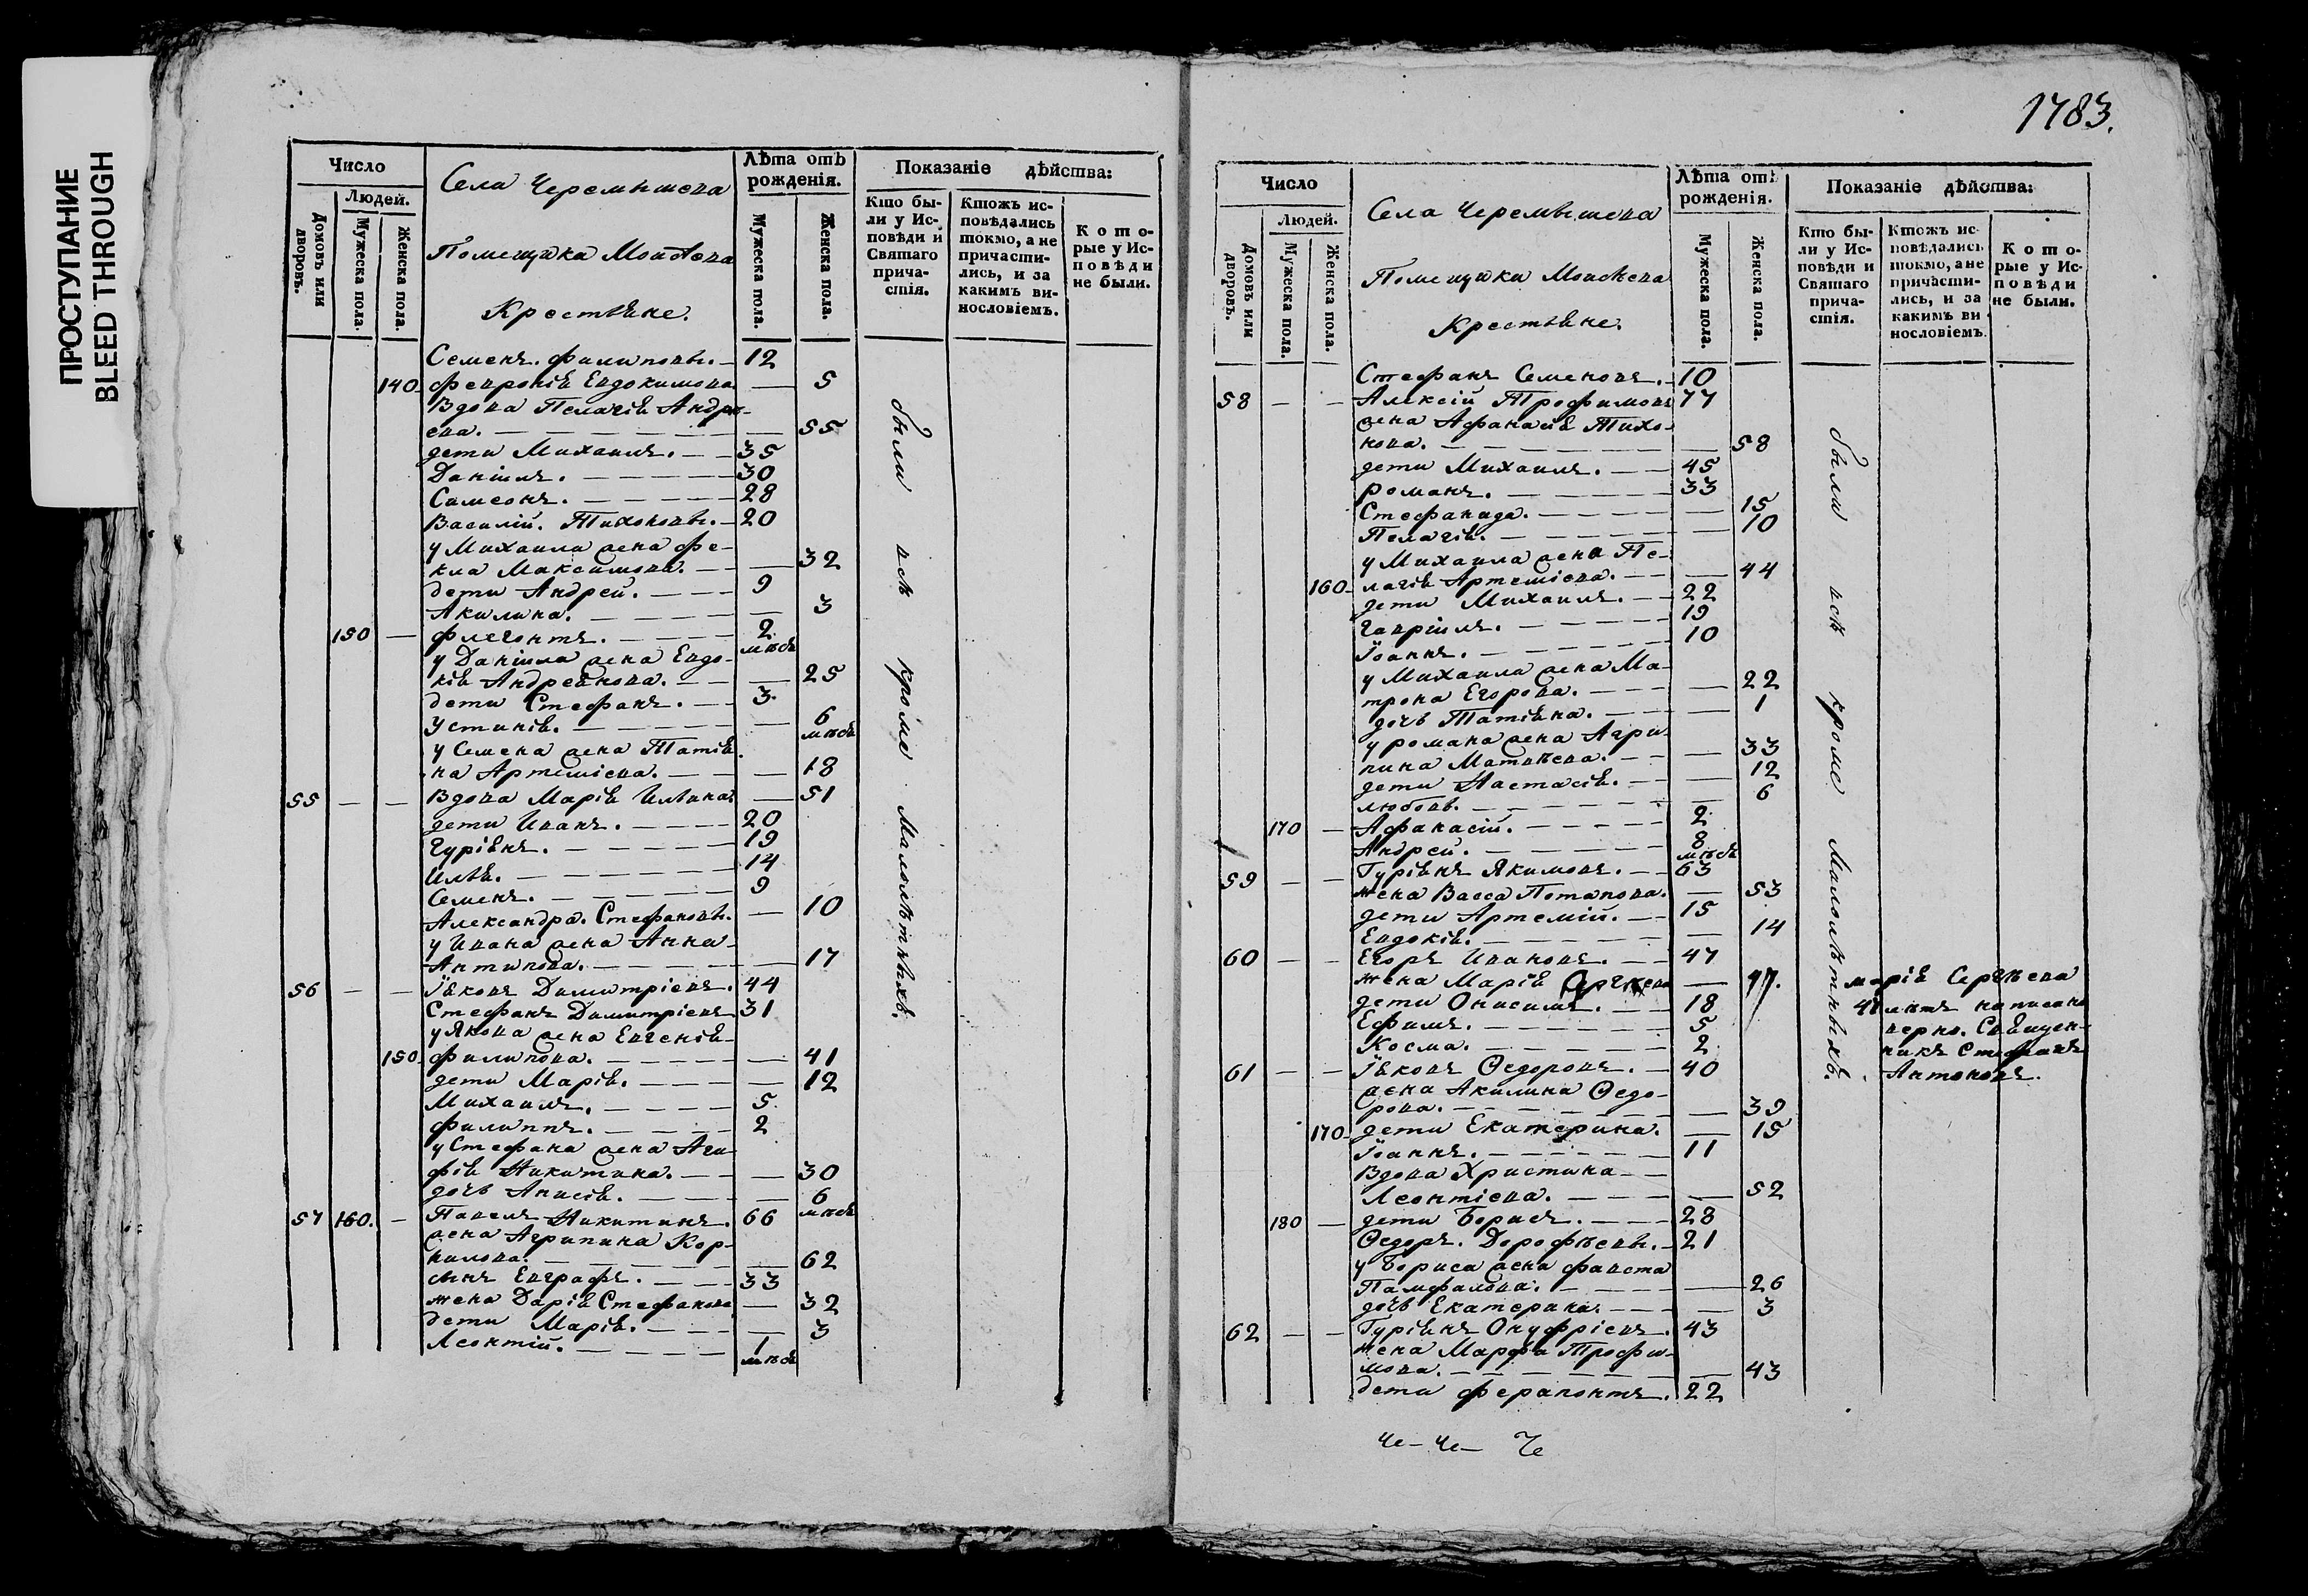 ПРОСТУПАНИЕ
BLEED THROUGH
1783.
Число
Людей.
Домовъ или дворовъ.
Мужеска пола.
Женска пола.
Села Черемышева
Помещика Моисѣева
Крестьяне.
Лѣта отъ рожденія.
Мужеска пола.
Женска пола.
Показаніе дѣйства:
Кто бы-
ли у Ис-
повѣди и
Святаго
прича-
стія.
Ктожъ ис-
повѣдались
токмо, а не
причасти-
лись, и за
какимъ ви-
нословіемъ.
Кото-
рые у Ис-
повѣди
не были.
Семенъ. Филиповы. — 12
140 Февронія Евдокимова — 5
Вдова Пелагія Андре-
ева. — 55
дети Михаилъ. — 35
Даніилъ. — 30
Симеонъ. — 28
Василій. Тихоновы. — 20
у Михаила жена Фе-
кла Максимова. — 32
дети Андрей. — 9
Акилина. — 3
150 — Флегонтъ. — 2 мѣсѣ
у Даніила жена Евдо-
кія Андреянова. — 25
дети Стефанъ. — 3
Устинія. — 6 мѣсѣ
у Семена жена Татія-
на Артемиева. — 18
55 — — Вдова Марія Ильина — 51
дети Иванъ. — 20
Гуріянъ. — 19
Илья. — 14
Семенъ. — 9
Александра. Стефановы. — 10
у Ивана жена Анна
Антипова. — 17
56 — — Іяковъ Димитріевъ. 44
Стефанъ Димитріевъ 31
у Якова жена Евгенія
150 Филипова. — 41
дети Марія. — 12
Михаилъ. — 5
Филиппъ. — 2
у Стефана жена Ага-
фія Никитина. — 30
дочь Анисія. — 6 мѣсѣ
57 160. — Павелъ Никитинъ. 66
жена Агрипина Кор-
нилова. — 62
сынъ Евграфъ. — 33
жена Дарія Стефанова — 32
дети Марія. — 3
Леонтій. — 1 мѣсѣ
были всѣ кроме малолѣтныхъ.
Число
Людей.
Домовъ или дворовъ.
Мужеска пола.
Женска пола.
Села Черемышева
Помещика Моисѣева
Крестьяне.
Лѣта отъ рожденія.
Мужеска пола.
Женска пола.
Показаніе дѣйства:
Кто бы-
ли у Ис-
повѣди и
Святаго
прича-
стія.
Ктожъ ис-
повѣдались
токмо, а не
причасти-
лись, и за
какимъ ви
нословіемъ.
Кото-
рые у Ис-
повѣди
не были.
Стефанъ Семеновъ. — 10
58 — — Алексій Трофимовъ 77
жена Афанасія Тихо-
нова. — 58
дети Михаилъ. — 45
Романъ. — 33
Стефанида. — 15
Пелагія. — 10
у Михаила жена Пе-
160 лагія Артемиева. — 44
дети Михаилъ. — 22
Гавріилъ. — 19
Іоаннъ. — 10
у Михаила жена Ма-
трона Егорова. — 22
дочь Татіяна. — 1
у Романа жена Агри-
пина Матвѣева. — 33
дети Настасія. — 12
Любовь. — 6
170 — Афанасій. — 2
Андрей. — 8 мѣсѣ
59 — — Гуріянъ Якимовъ. — 63
жена Васса Потапова. — 53
дети Артемій. — 15
Евдокія. — 14
60 — — Егоръ Ивановъ. — 47
жена Марія Сергѣева — 47.
дети Онисимъ. — 18
Ефимъ. — 5
Косма. — 2
61 — — Іяковъ Ѳедоровъ. — 40
жена Акилина Ѳедо-
рова. — 39
170 дети Екатерина. — 15
Іоаннъ. — 11
Вдова Христина
Леонтіева. — 52
180 — дети Борисъ. — 28
Ѳедоръ. Дорофѣевы. — 21
у Бориса жена Фавста
Памфилова. — 26
дочь Екатерина. — 3
62 — — Гуріянъ Онуфріевъ. 43
жена Марфа Трофи-
мова. — 43
дети Ферапонтъ. 22
были всѣ кроме малолѣтныхъ.
марія Сергѣева
41 лѣтъ написана
верно. Священ-
никъ Стефанъ
Антоновъ.
Че- Че- Че